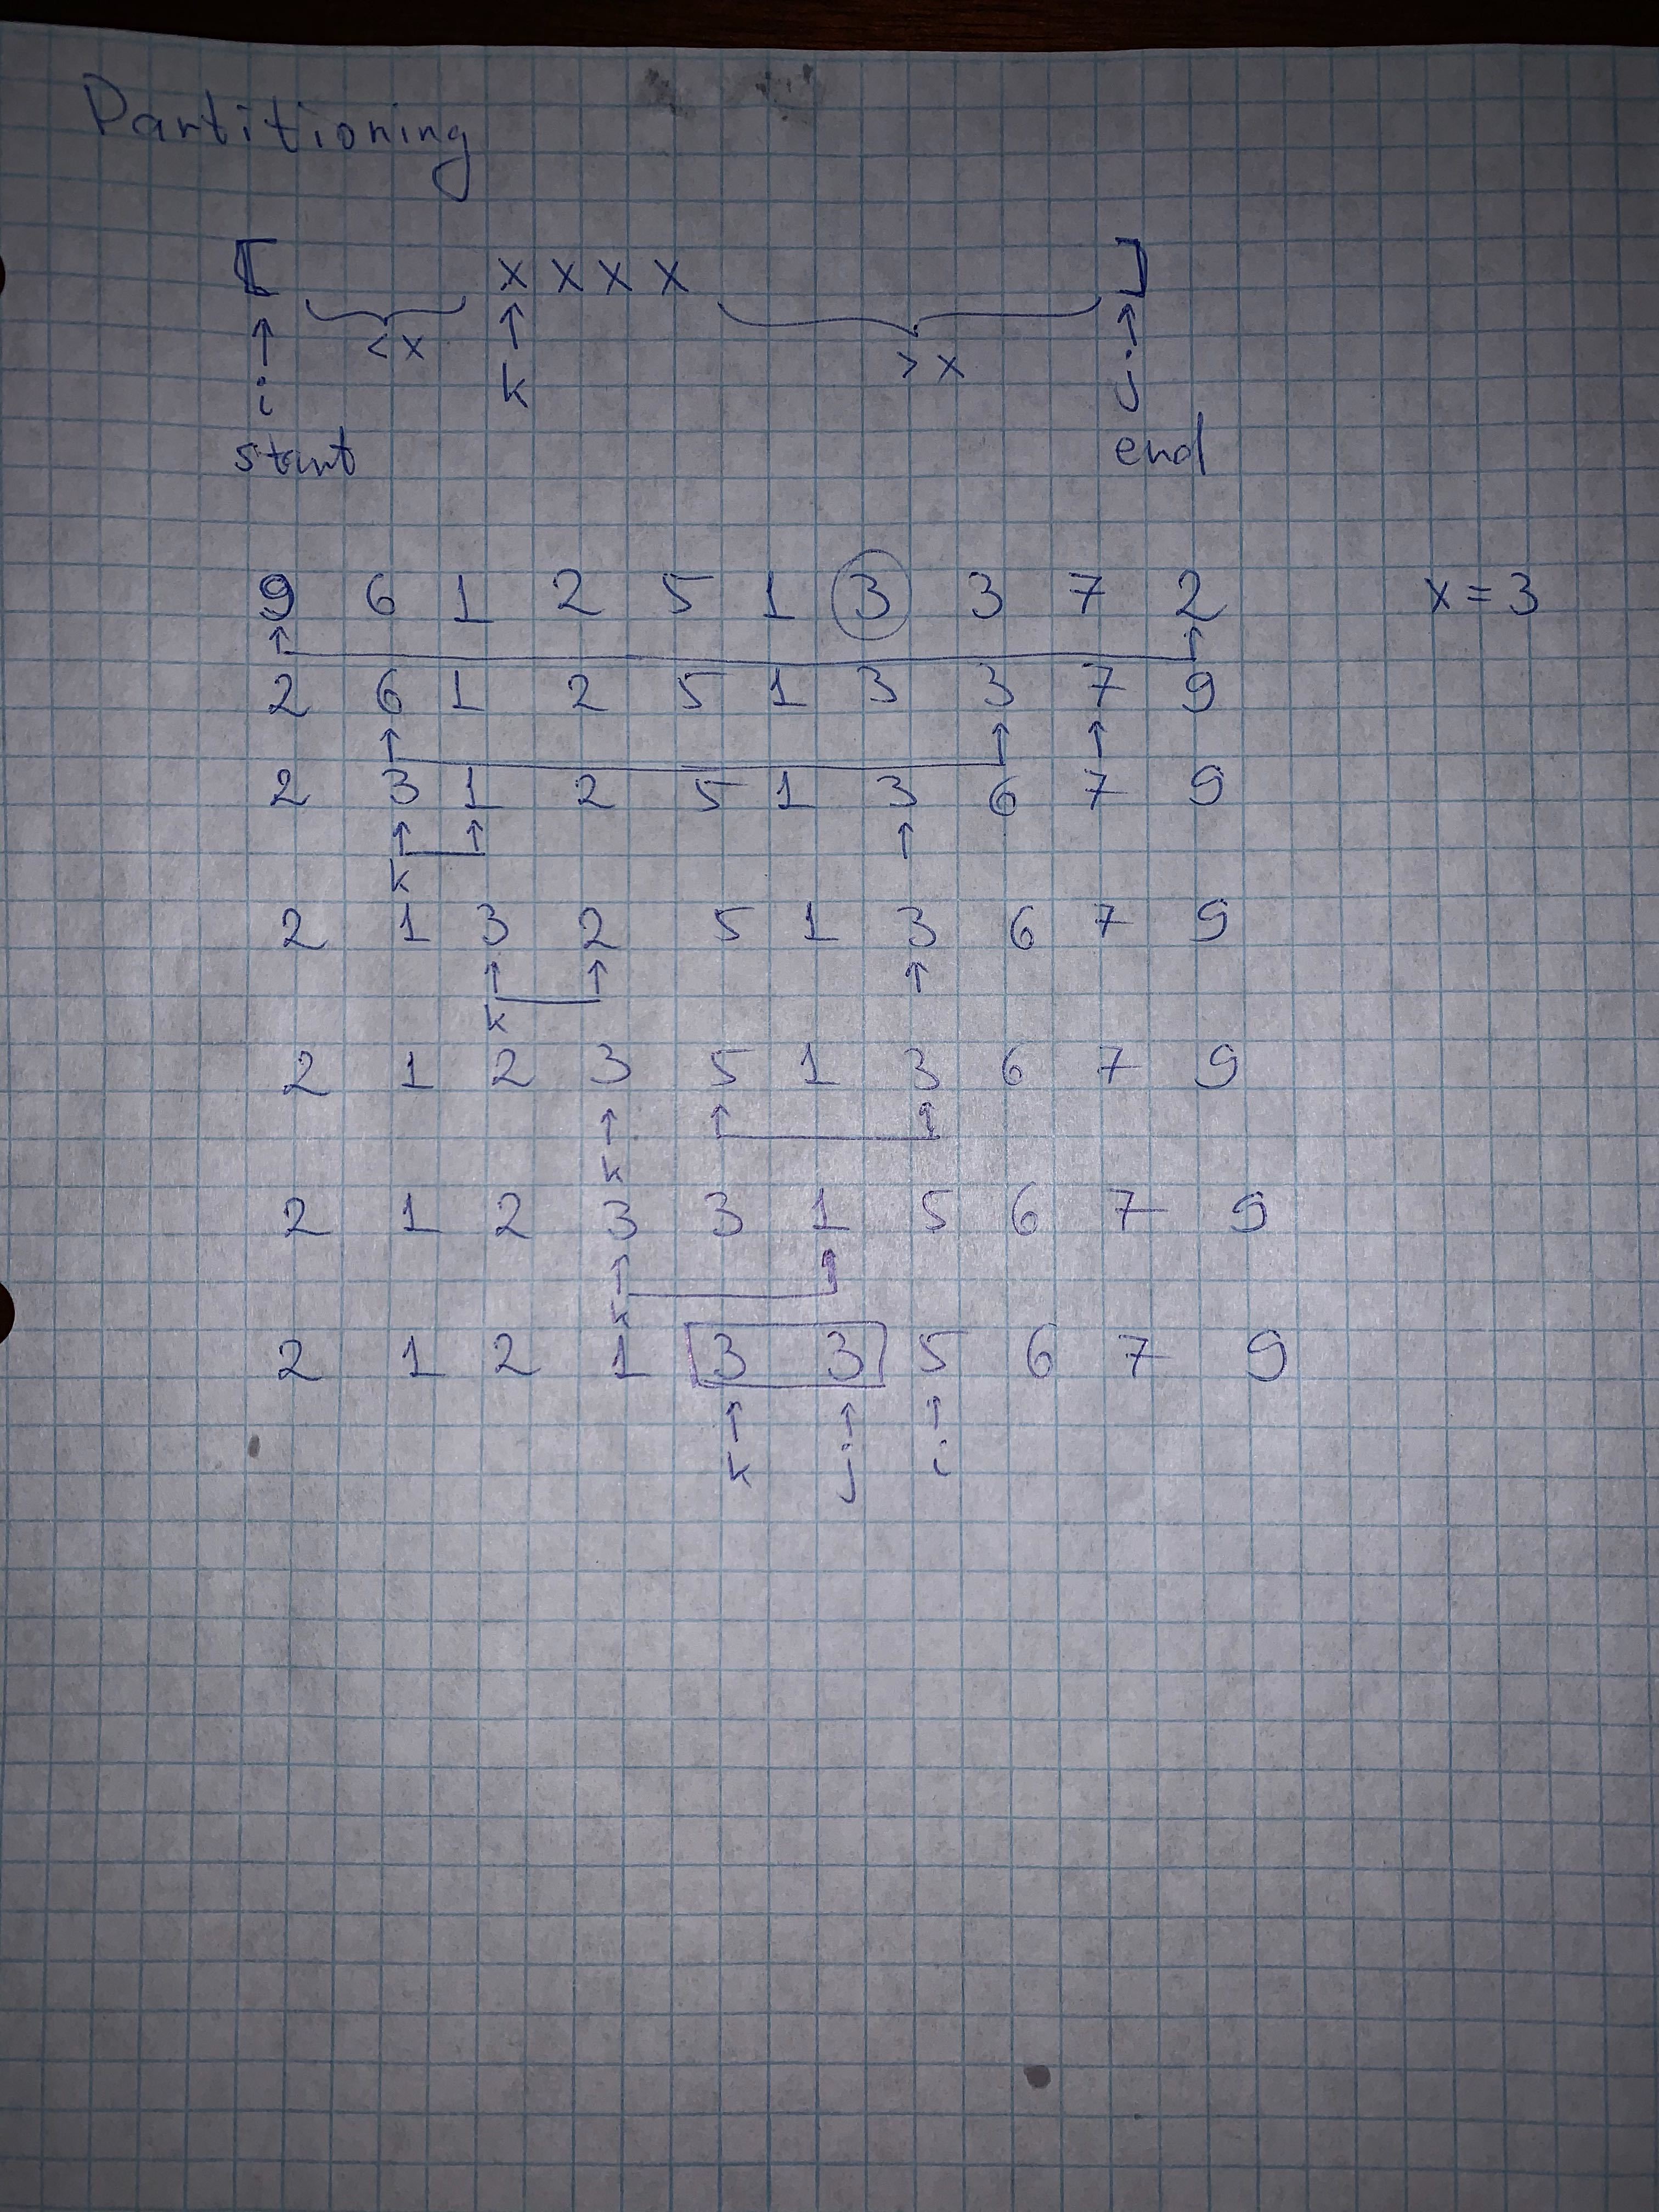 Partitioning
[ x x x x ]
< x > x
i k j
start end
9 6 1 2 5 1 3 3 7 2 x = 3
2 6 1 2 5 1 3 3 7 9
2 3 1 2 5 1 3 6 7 9
k
2 1 3 2 5 1 3 6 7 9
k
2 1 2 3 5 1 3 6 7 9
k
2 1 2 3 3 1 5 6 7 9
k
2 1 2 1 3 3 5 6 7 9
k j i